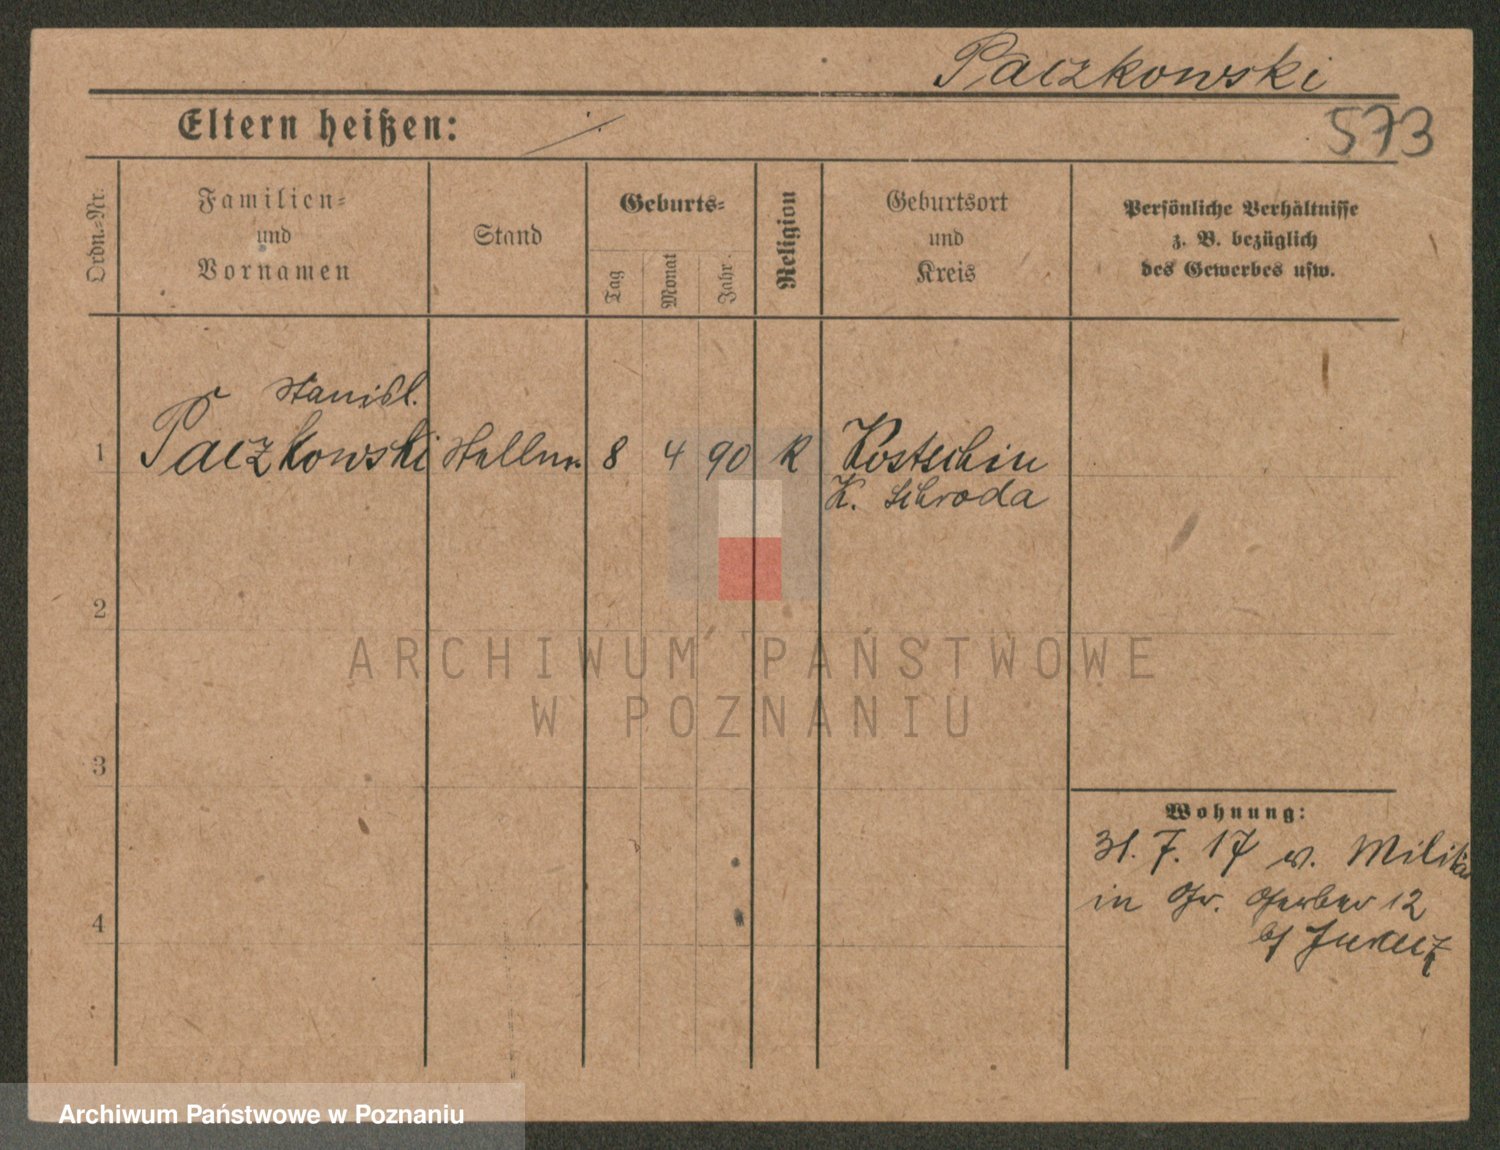 Paczkowski
573
Eltern heißen:
Ordn.-Nr.
Familien-
und
Vornamen
Stand
Geburts-
Tag
Monat
Jahr.
Religion
Geburtsort
und
Kreis
Persönliche Verhältnisse
z. B. bezüglich
des Gewerbes usw.
Stanisl.
1 Paczkowski 8 4 90 K Kostschin
K. Schroda
2
3
4
Wohnung:
31. 7. 17 v. Militär
in Gr. Gerber 12
ARCHIWUM PAŃSTWOWE
W POZNANIU
Archiwum Państwowe w Poznaniu